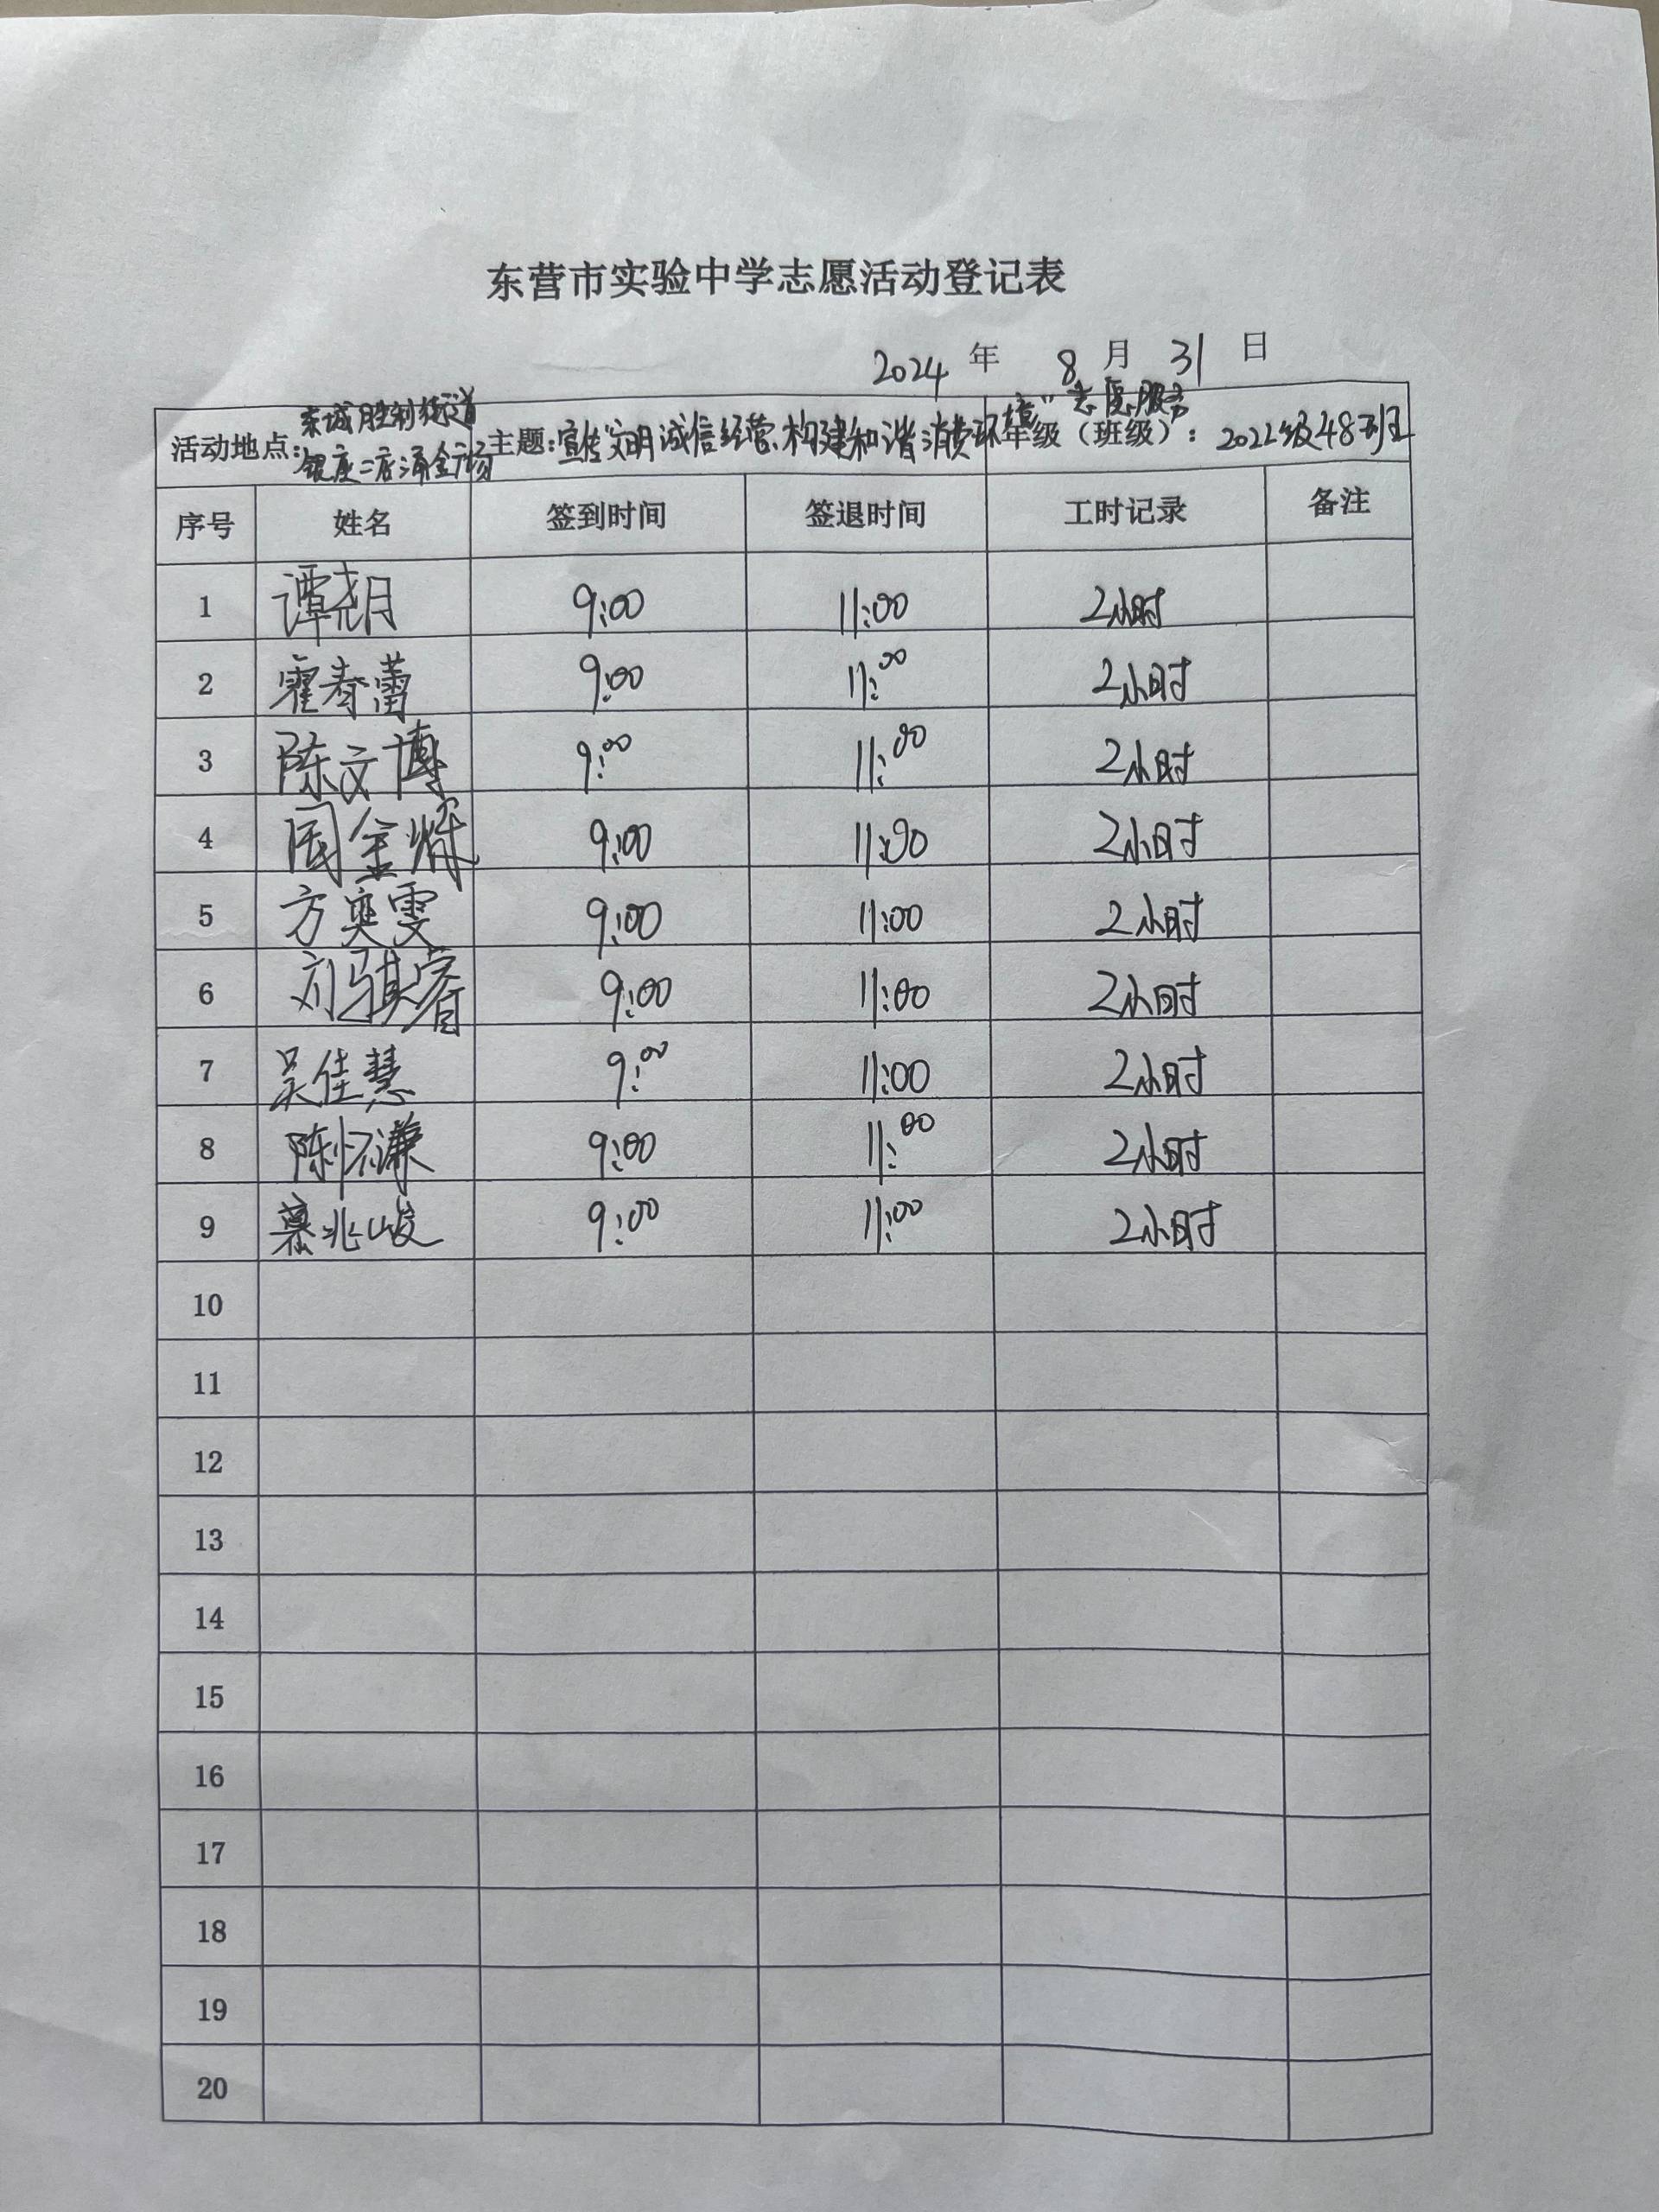 东营市实验中学志愿活动登记表
2024 年 8 月 31 日
活动地点: 东城胜利街道 银座二店涌金广场 主题: 宣传"文明诚信经营、构建和谐消费环境"志愿服务 年级（班级）: 2022级48班
序号 姓名 签到时间 签退时间 工时记录 备注
1 谭尧月 9:00 11:00 2小时
2 霍春蕾 9:00 11:00 2小时
3 陈文博 9:00 11:00 2小时
4 周金烁 9:00 11:00 2小时
5 方奕雯 9:00 11:00 2小时
6 刘骐睿 9:00 11:00 2小时
7 吴佳慧 9:00 11:00 2小时
8 陈怀谦 9:00 11:00 2小时
9 綦兆峻 9:00 11:00 2小时
10
11
12
13
14
15
16
17
18
19
20